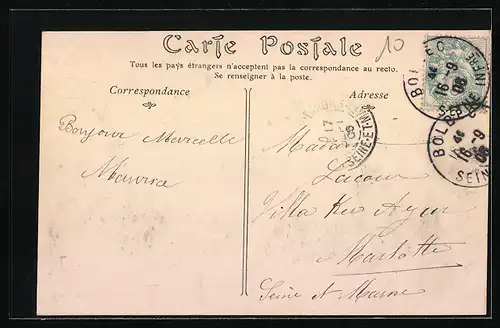 Carte Postale
10
Tous les pays étrangers n'acceptent pas la correspondance au recto.
Se renseigner à la poste.
Correspondance
Adresse
Bonjour Marcelle
Maurice
Madame
Lacour
Villa Ker Ayen
Marlotte
Seine et Marne
BOLBEC
16-9
06
SEINE INFRE
BOLBEC
16-9
06
SEINE
17
9
06
SEINE-ET-M